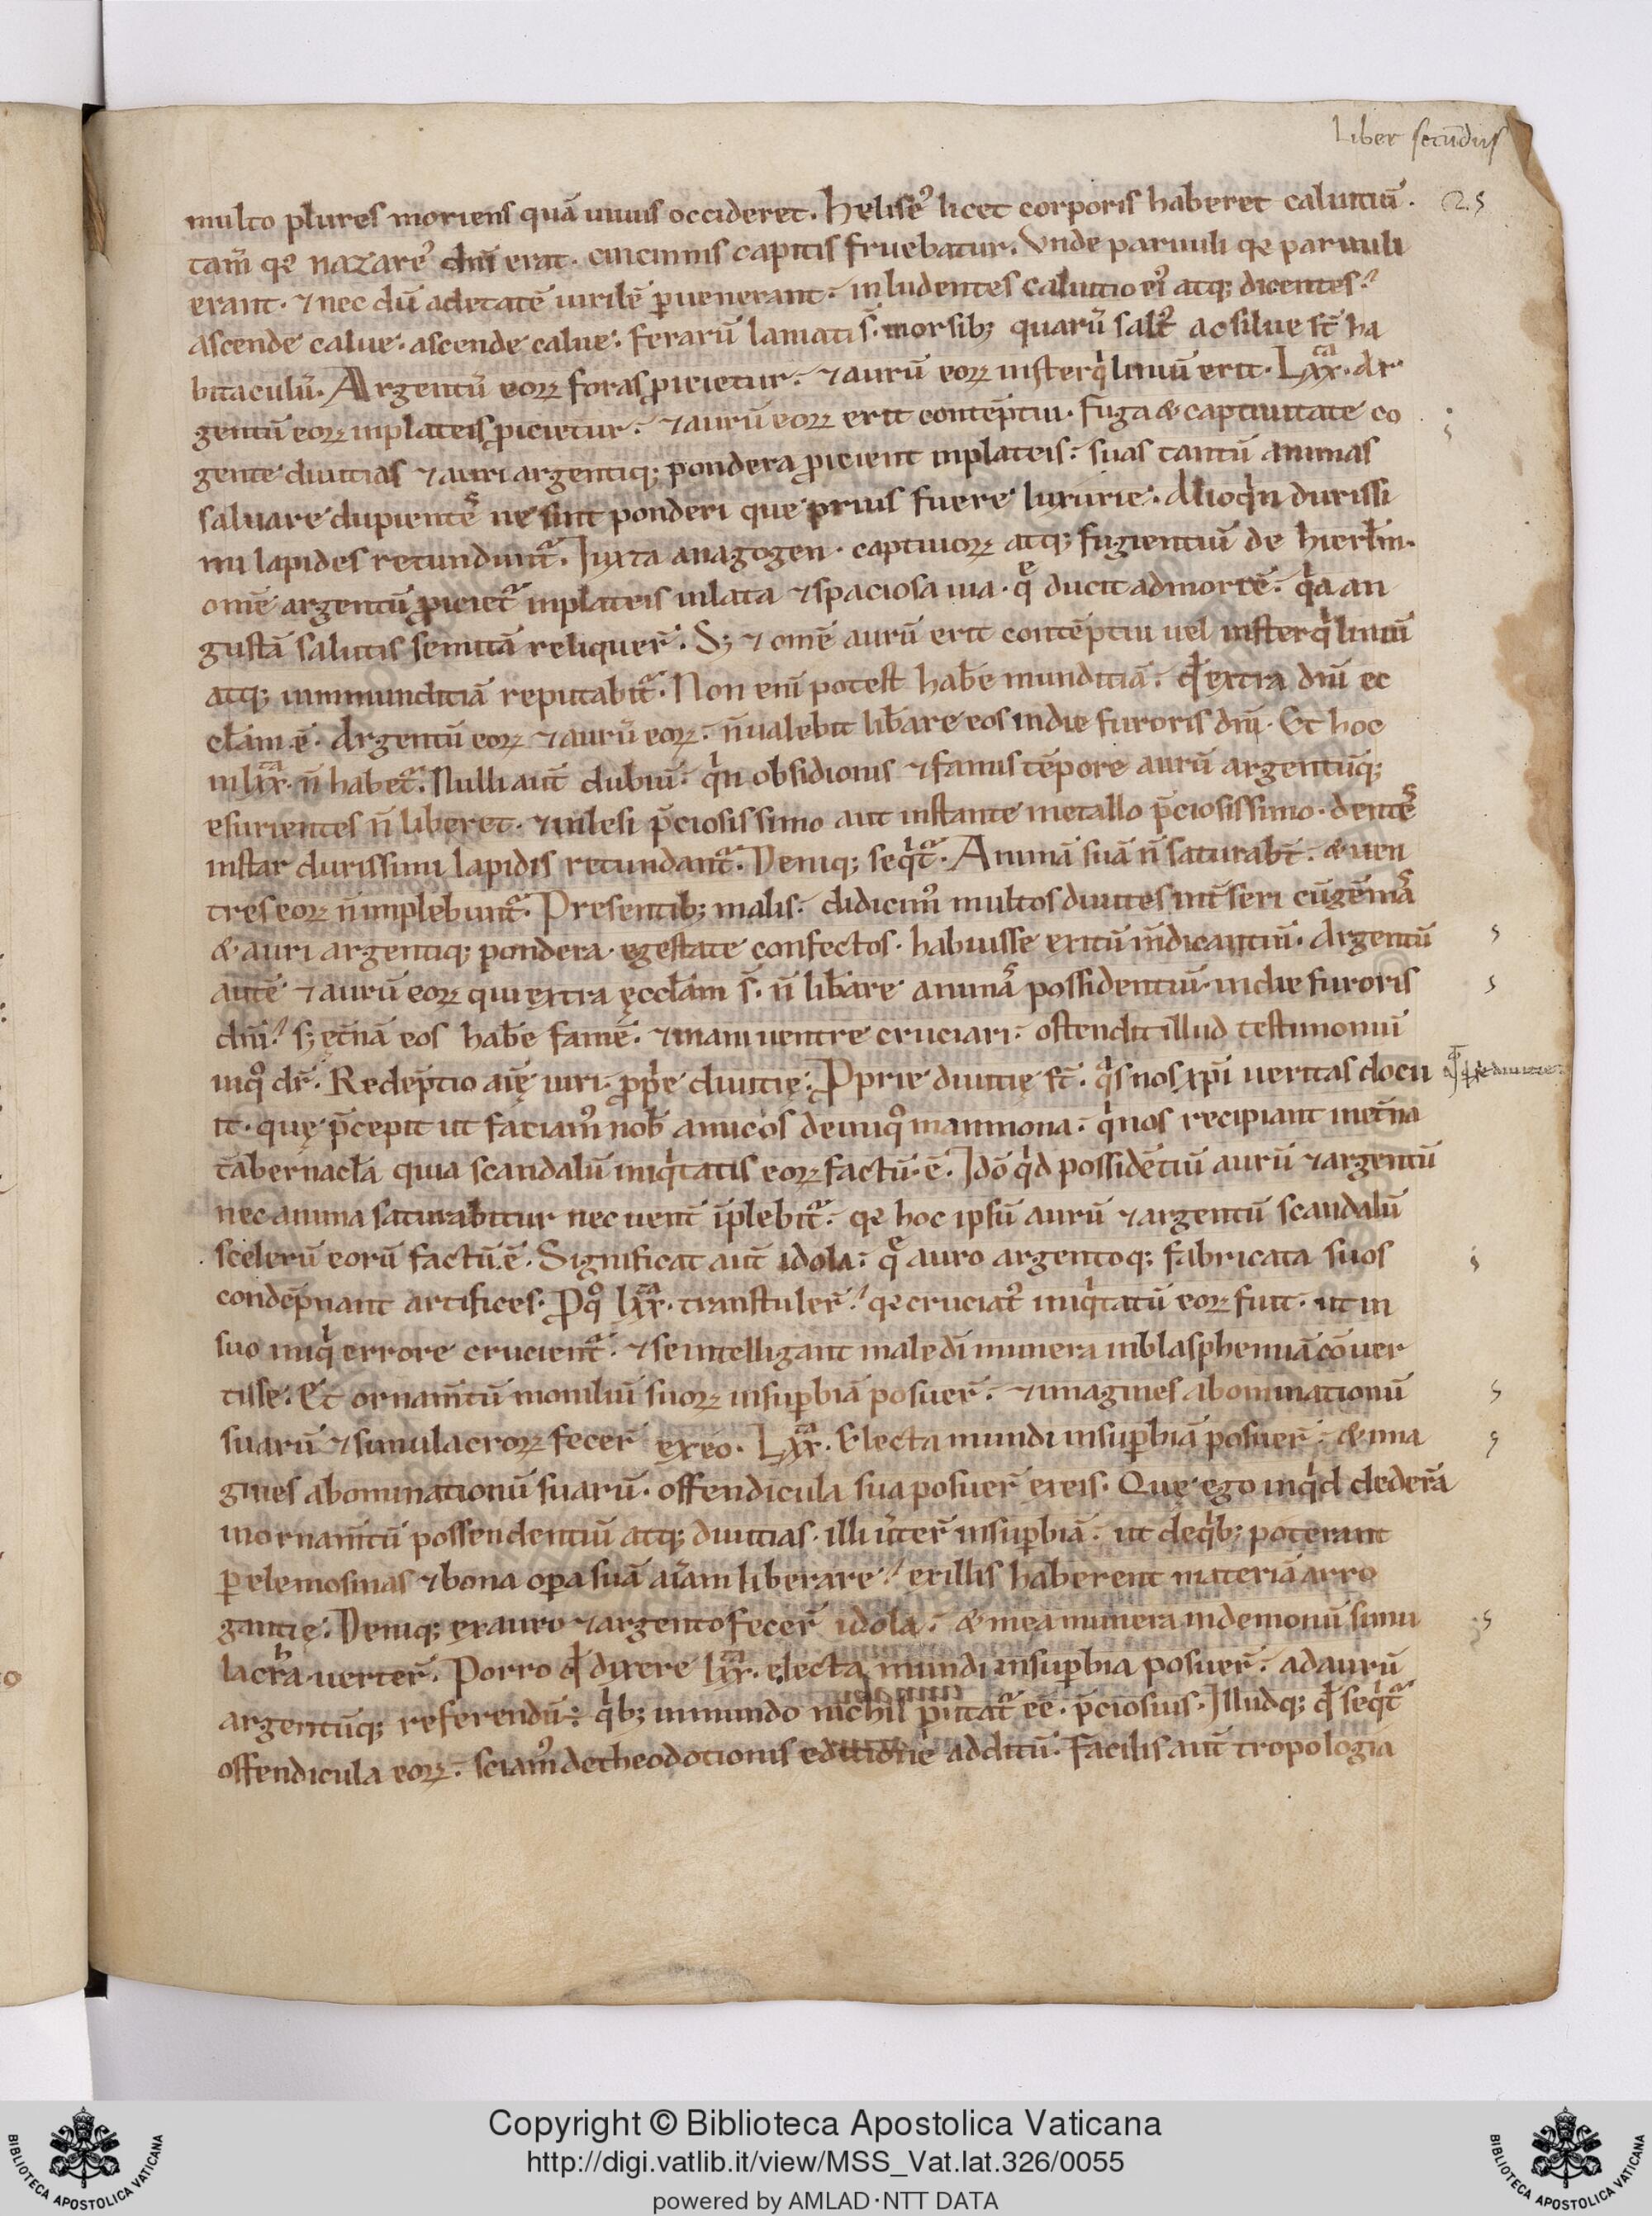 Liber secūdus
25
multo plures moriens quā uiuus occideret. Heliseꝰ licet corporis haberet caluitiū.
tam̄ qꝫ nazareꝰ dn̄i erat. cincinnis capitis fruebatur. Vnde paruuli qꝫ paruuli
erant. ⁊ nec dū ad etatē uirilē ꝑuenerant. inludentes caluitio eiꝰ atqꝫ dicentes.
ascende calue. ascende calue. ferarū laniati s̄. morsibꝫ quarū saltꝰ ac silue st̄ ha
bitaculū. Argentū eoꝝ foras ꝓicietur. ⁊ aurū eoꝝ in sterqͥlinuū erit. Lxxᵃ. Ar
gentū eoꝝ in plateis ꝓicietur. ⁊ aurū eoꝝ erit contēptui. fuga & captiuitate co
gente diuitias ⁊ auri argentiqꝫ pondera ꝓicient in plateis. suas tantū animas
saluare cupientes ne sint ponderi que prius fuere luxurie. Alioqͥn durissi
mi lapides retunduntᷣ. Iuxta anagogen. captiuoꝝ atqꝫ fugientiū de hierl̄m.
om̄e argentū ꝓicietᷣ in plateis in lata ⁊ spaciosa uia. qͤ ducit ad mortē. qͥa an
gustā salutis semitā reliquer̄. Sꝫ ⁊ om̄e aurū erit contēptui uel in sterqͥlinuū
atqꝫ inmunditiā reputabitᷣ. Non enī potest hab̄e munditiā. qd̄ extra dn̄i ec
cl̄am ē. Argentū eoꝝ ⁊ aurū eoꝝ. n̄ ualebit lib̄are eos in die furoris dn̄i. Et hoc
in lxxᵃ. n̄ habetᷣ. Nulli aut̄ dubiū. qͥn obsidionis ⁊ famis tēpore aurū argentūqꝫ
esurientes n̄ liberet. ⁊ in lesi p̄ciosissimo aut instante metallo p̄ciosissimo. dentes
instar durissimi lapidis retundantᷣ. Deniqꝫ seqͥtᷣ. Animā suā n̄ saturabt̄. & uen
tres eoꝝ n̄ implebuntᷣ. Presentibꝫ malis. didicimꝰ multos diuites int̄ seri cū gēmas
& auri argentiqꝫ pondera. egestate confectos. habuisse exitū m̄dicantiū. Argentū
autē ⁊ aurū eoꝝ qui extra ęccl̄am s̄. n̄ lib̄are animas possidentiū. in die furoris
dn̄i. sꝫ ęt̄nā eos hab̄e famē. ⁊ inani uentre cruciari. ostendit illud testimoniū
in qͦ dr̄. Redēptio aīę uiri. ꝓprię diuitię. Pprie diuitię st̄. qͣs nos xp̄i ueritas docu
it. quę p̄cepit ut faciamꝰ nob̄ amicos de iniqͦ mammona. qͥ nos recipiant in et̄na
tabernacl̄a quia scandalū iniqͥtatis eoꝝ factū ē. Idō qͥd possidētiū aurū ⁊ argentū
nec anima saturabitur nec uent̄ īplebitᷣ. qꝫ hoc ipsū aurū ⁊ argentū scandalū
scelerū eorū factū ē. Significat aut̄ idola. qͤ auro argentoqꝫ fabricata suos
condēpnant artifices. Pqͦ lxxᵃ. transtuler̄. qꝫ cruciatꝰ iniqͥtatū eoꝝ fuit. ut in
suo iniqͥ errore crucientᷣ. ⁊ se intelligant male dī munera in blasphemiā cōuer
tisse. Et ornam̄tū moniliū suoꝝ in suꝑbiā posuer̄. ⁊ imagines abominationū
suarū ⁊ simulacroꝝ fecer̄ ex eo. Lxxᵃ. Electa mundi in suꝑbiā posuer̄. & ima
gines abominationū suarū. offendicula sua posuer̄ ex eis. Quę ego inqͥd dederā
in ornam̄tū possendentiū atqꝫ diuitias. illi ūter̄ in suꝑbiā. ut de qͥbꝫ poterant
ꝑ elemosinas ⁊ bona oꝑa suā aīam liberare. ex illis haberent materiā arro
gantię. Deniqꝫ ex auro ⁊ argento fecer̄ idola. & mea munera in demonū simu
lacra uerter̄. Porro qd̄ dixere lxxᵃ. electa mundi in suꝑbia posuer̄. ad aurū
argentūqꝫ referendū. qͥbꝫ in mundo nichil putatᷣ eē. p̄ciosius. Illudqꝫ qd̄ seqͥtᷣ
offendicula eoꝝ. sciamꝰ de theodotionis editione additū. Facilis aut̄ tropologia
Copyright © Biblioteca Apostolica Vaticana
http://digi.vatlib.it/view/MSS_Vat.lat.326/0055
powered by AMLAD·NTT DATA
BIBLIOTECA APOSTOLICA VATICANA
BIBLIOTECA APOSTOLICA VATICANA